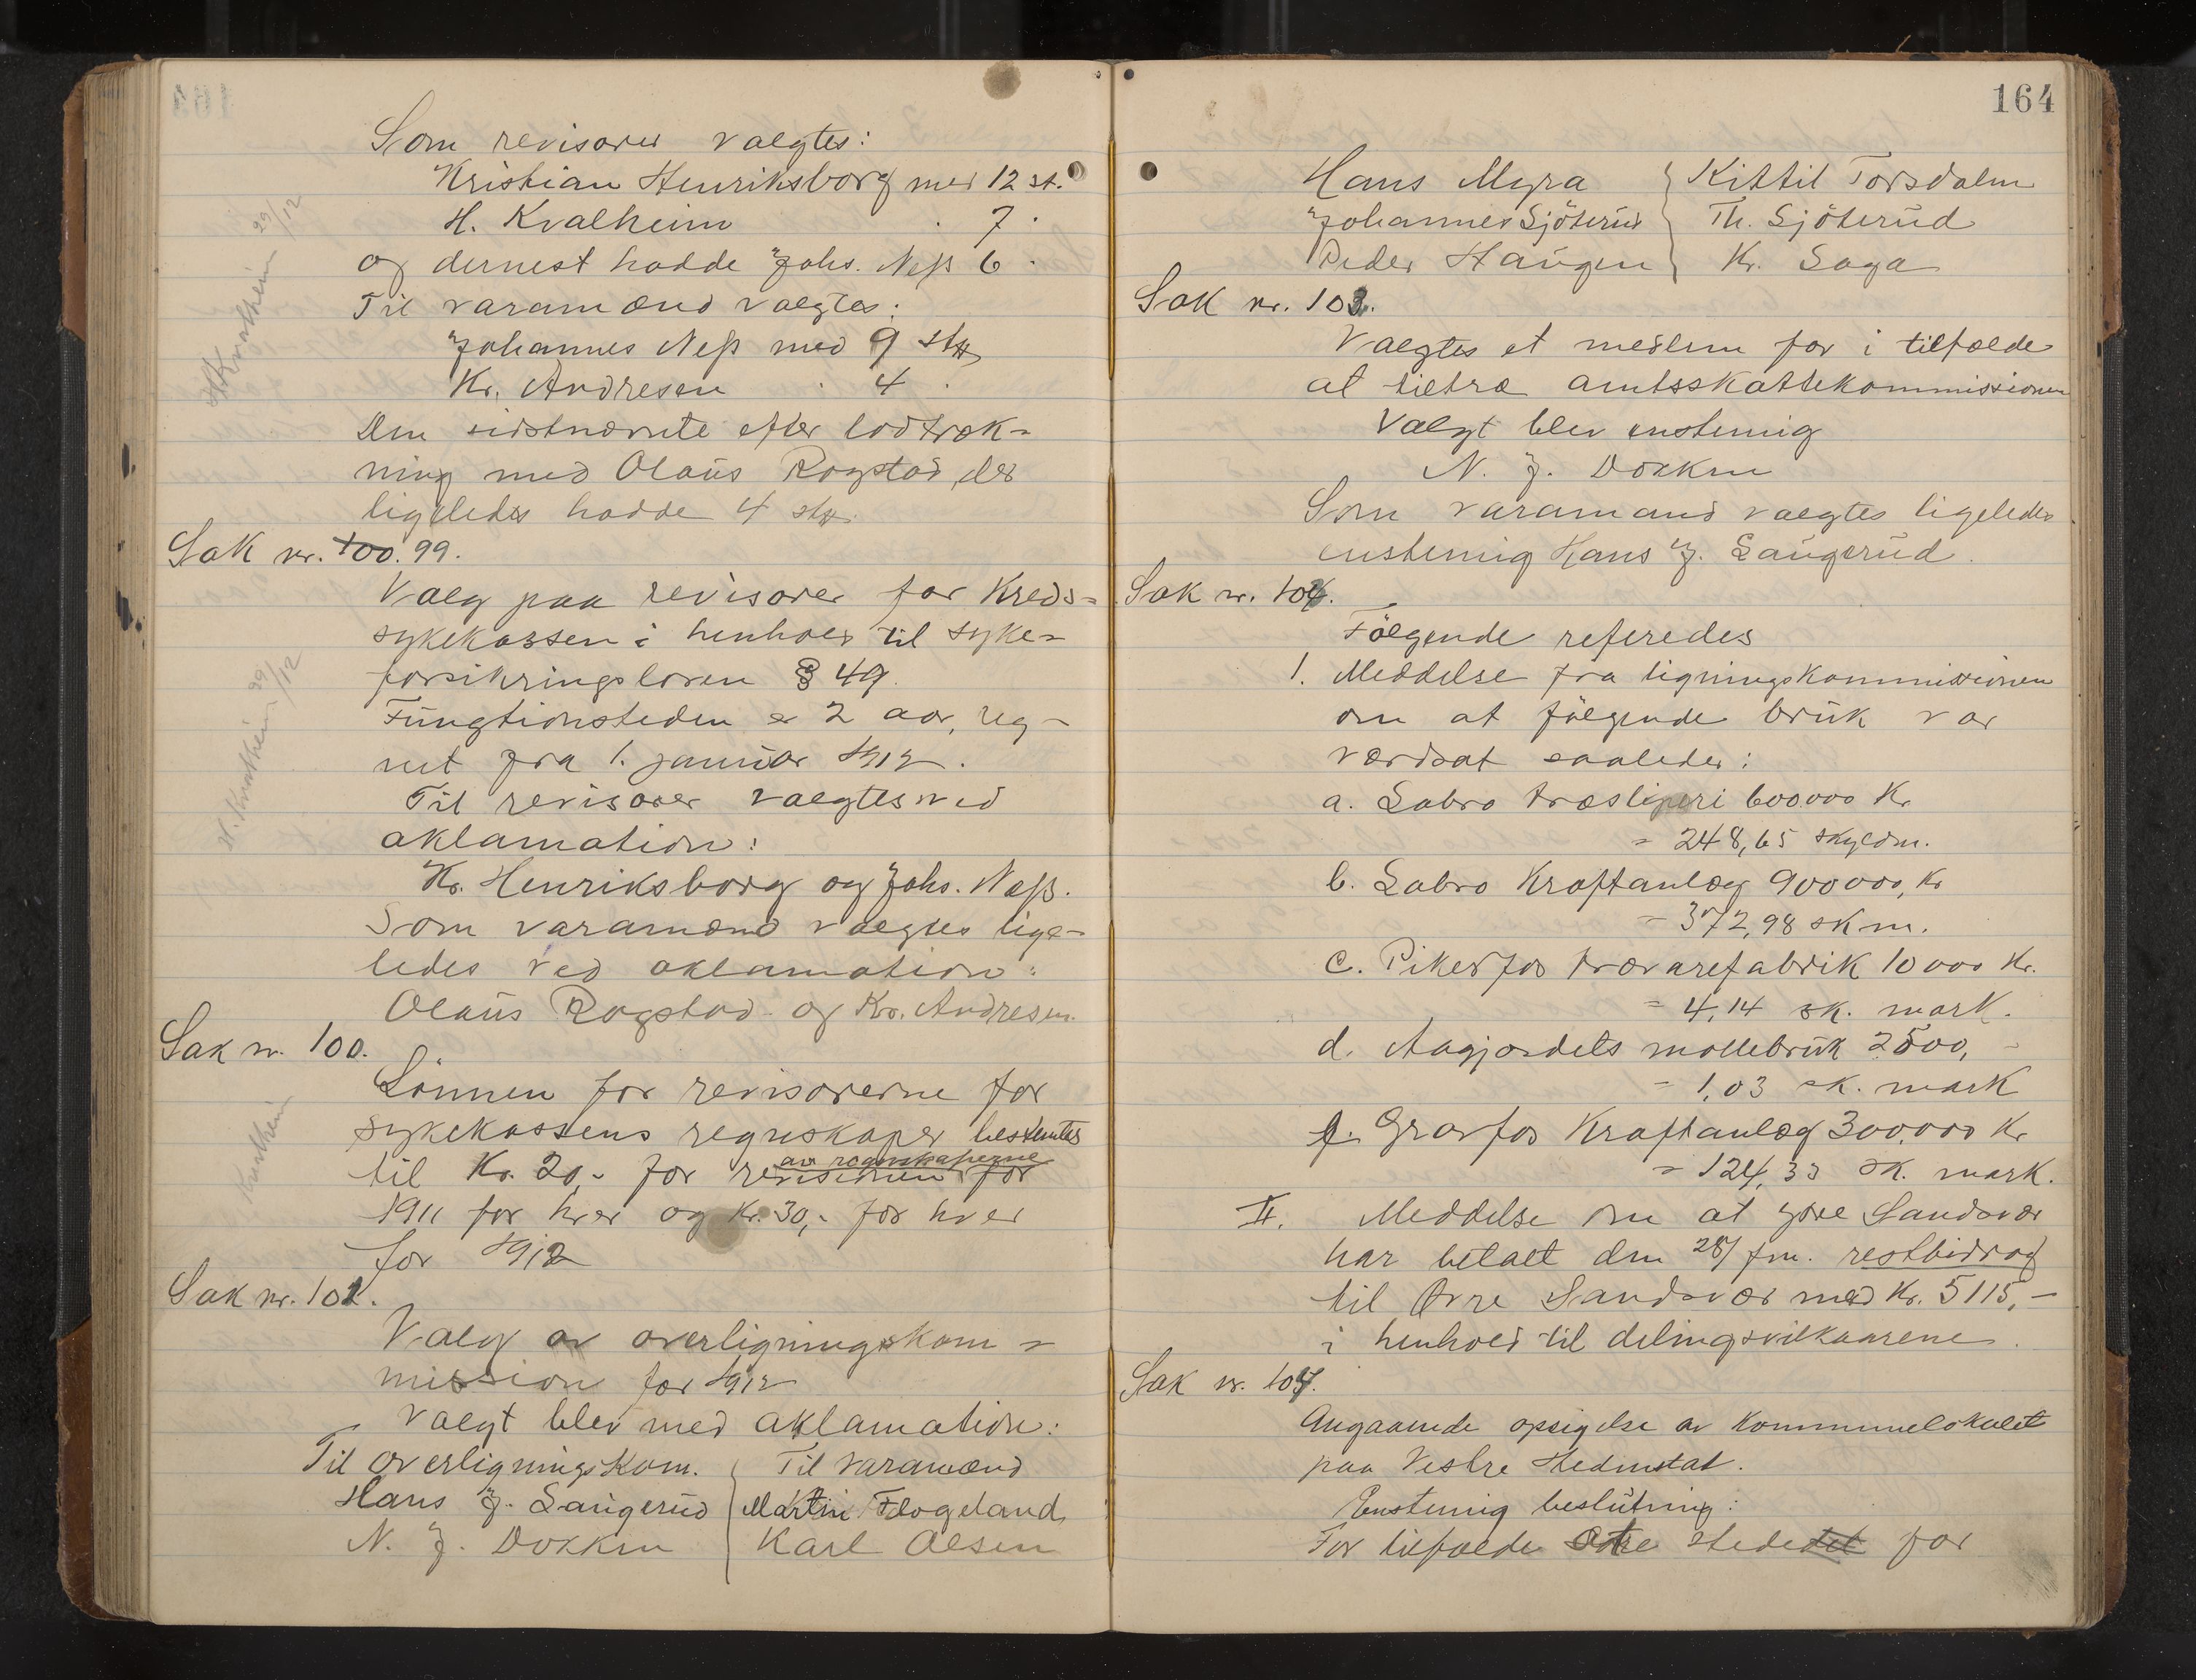 Som revisorer valgtes:
Kristian Henriksborg med 12 st.
H. Kvalheim . 7 .
og dernest hadde Johs. Neß 6 .
Til varamænd valgtes:
Johannes Neß med 9 st.
Kr. Andresen . 4 .
Den sidstnævnte efter lodtræk-
ning med Olaus Rogstad, der
ligeledes hadde 4 st.
Sak nr. 100. 99.
Valg paa revisorer for Kreds-
sykekassen i henhold til syke-
forsikringsloven § 49.
Fungtionstiden er 2 aar, reg-
net fra 1. januar 1912.
Til revisorer valgtes ved
aklamation:
Kr. Henriksborg og Johs. Neß.
Som varamænd valgtes lige-
ledes ved aklamation:
Olaus Rogstad og Kr. Andresen.
Sak nr. 100.
Lönnen for revisorerne for
sykekassens regnskaper bestemtes
av regnskaperne
til Kr. 20,- for revisionen for
1911 for hver og Kr. 30,- for hver
for 1912
Sak nr. 101.
Valg av overligningskom-
mission for 1912
Valgt blev med aklamation:
Til overligningskom. Til varamænd
Hans J. Saugerud Martin Flogeland
N. J. Dokken Karl Olsen
H Kvalheim 29/12
H. Kvalheim 29/12
Kvalheim
164
Hans Myra Kittil Torsdalen
Johannes Sjöterud Th. Sjöterud
Peder Haugen Kr. Saga
Sak nr. 102.
Valgtes et medlem for i tilfælde
at tiltræ amtsskattekommissionen
Valgt blev enstemig
N. J. Dokken
Som varamand valgtes ligeledes
enstemig Hans J. Saugerud.
Sak nr. 103.
Fölgende referedes
1. Meddelse fra ligningskommissionen
om at fölgende bruk var
værdsat saaledes:
a. Labro træsliperi 600.000 Kr.
= 248,65 skyldm.
b. Labro Kraftanlæg 900000, Kr
= 372,98 skm.
c. Pikerfos trævarefabrik 10000 Kr.
= 4,14 sk. mark.
d. Aagjordets mollebruk 2500, -
= 1,03 sk. mark
f. Gravfos Kraftanlæg 300.000 Kr
= 124,33 sk. mark.
II. Meddelse om at ytre Sandsvær
har betalt den 28/ fm. restbidrag
til Övre Sandsvær med Kr. 5115,-
i henhold til delingsvilkaarene.
Sak nr. 104.
Angaaende opsigelse av Kommunelokalet
paa Vestre Hedenstad.
Enstemig beslutning:
For tilfælde stedet for